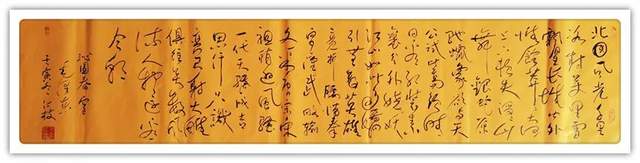 北国风光千里
冰封万里雪
飘望长城内外
惟馀莽莽大河
上下顿失滔滔山
舞银蛇原
驰蜡象欲与天
公试比高须晴
日看红装素
裹分外妖娆
江山如此多娇
引无数英雄
竞折腰惜秦
皇汉武略输
文采唐宗宋
祖稍逊风骚
一代天骄成吉
思汗只识
弯弓射大雕
俱往矣数风
流人物还看
今朝
沁园春雪
毛泽东
壬寅冬